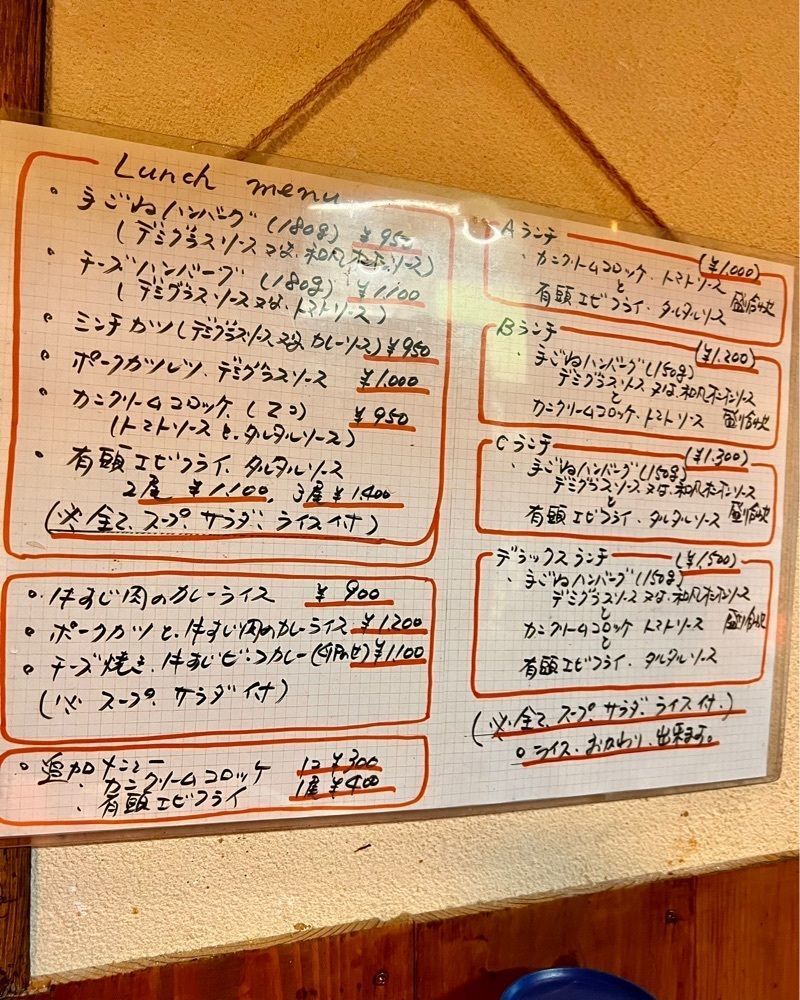 Lunch menu
・手ごねハンバーグ(180g) ¥950
(デミグラスソース又は、和風オニオンソース)
・チーズハンバーグ(180g) ¥1,100
(デミグラスソース又は、トマトソース)
・ミンチカツ(デミグラスソース又は、カレーソース) ¥950
・ポークカツレツ、デミグラスソース ¥1,000
・カニクリームコロッケ、(2コ) ¥950
(トマトソースと、タルタルソース)
・有頭エビフライ、タルタルソース
2尾 ¥1,100、3尾 ¥1,400
(※全て、スープ、サラダ、ライス付)
・牛すじ肉のカレーライス ¥900
・ポークカツと、牛すじ肉のカレーライス ¥1,200
・チーズ焼き、牛すじビーフカレー(卵のせ) ¥1,100
(※スープ、サラダ付)
・追加メニュー
・カニクリームコロッケ 1コ ¥300
・有頭エビフライ 1尾 ¥400
Aランチ (¥1,000)
・カニクリームコロッケ、トマトソース
と
有頭エビフライ、タルタルソース 盛り合わせ
Bランチ (¥1,200)
・手ごねハンバーグ(150g)
デミグラスソース又は、和風オニオンソース
と
カニクリームコロッケ、トマトソース 盛り合わせ
Cランチ (¥1,300)
・手ごねハンバーグ(150g)
デミグラスソース又は、和風オニオンソース
と
有頭エビフライ、タルタルソース 盛り合わせ
デラックスランチ (¥1,500)
・手ごねハンバーグ(150g)
デミグラスソース又は、和風オニオンソース
と
カニクリームコロッケ トマトソース 盛り合わせ
と
有頭エビフライ、タルタルソース
(※全て、スープ、サラダ、ライス付、)
○ライス、おかわり、出来ます。